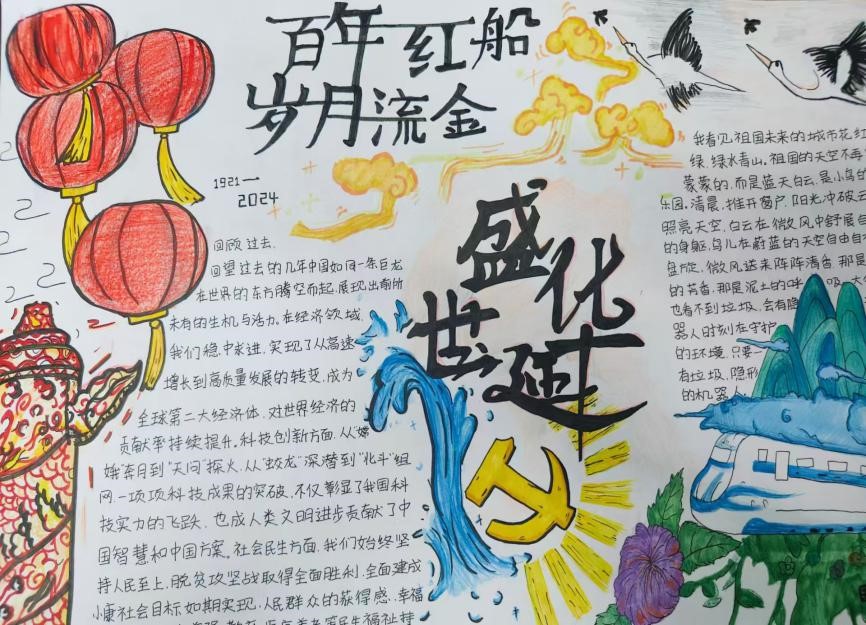 百年红船
岁月流金
1921—
2024
盛世华诞
回顾过去.
回望过去的几年中国如同一条巨龙
在世界的东方腾空而起,展现出前所
未有的生机与活力。在经济领域
我们稳中求进,实现了从高速
增长到高质量发展的转变,成为
全球第二大经济体.对世界经济的
贡献率持续提升.科技创新方面.从"嫦
娥"奔月到"天问"探火.从"蛟龙"深潜到"北斗"组
网.一项项科技成果的突破.不仅彰显了我国科
技实力的飞跃.也成人类文明进步贡献了中
国智慧和中国方案。社会民生方面.我们始终坚
持人民至上.脱贫攻坚战取得全面胜利.全面建成
小康社会目标如期实现.人民群众的获得感.幸福
我看见祖国未来的城市花红
绿.绿水青山。祖国的天空不再
蒙蒙的,而是蓝天白云.是小鸟的
乐园。清晨.推开窗户.阳光冲破云
照亮天空,白云在微风中舒展自
的身躯.鸟儿在蔚蓝的天空自由自
盘旋.微风送来阵阵清香.那是
的芳香.那是泥土的呼吸.大
也看不到垃圾.会有隐
器人时刻在守护
的环境.只要一
有垃圾.隐形
的机器人